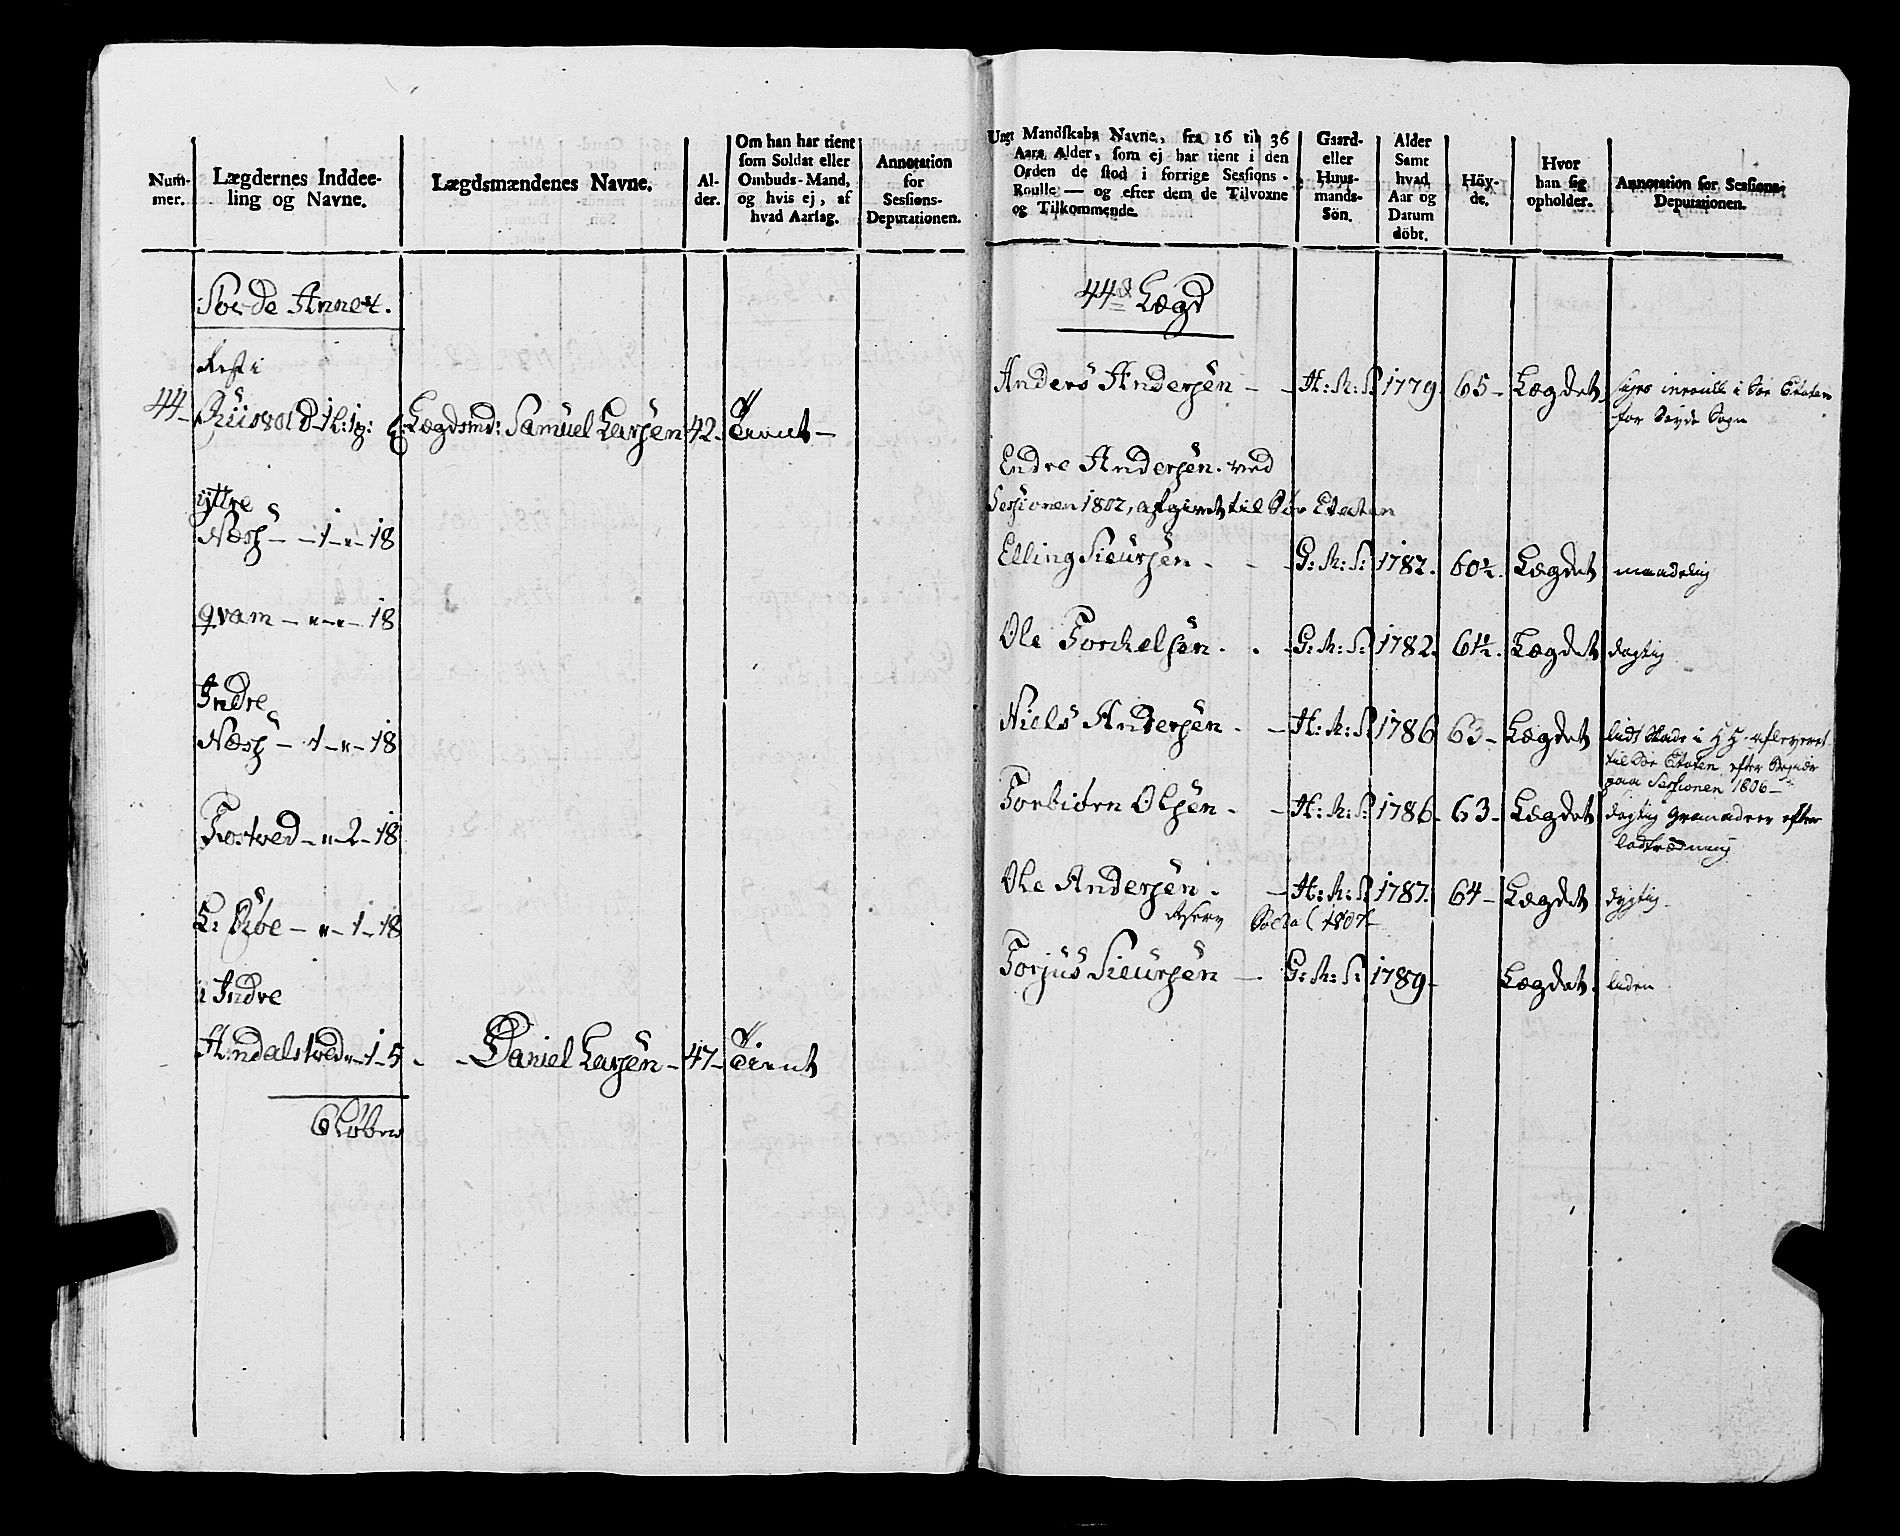 Num-
mer.
Lægdernes Inddee-
ling og Navne.
Lægdsmændenes Navne.
Al-
der.
Om han har tient
som Soldat eller
Ombuds-Mand,
og hvis ej, af
hvad Aarsag.
Annotation
for
Sessions-
Deputationen.
Annex.
Rest i
44 1 h: 1 f: Lægdsmd: Samuel Larsen 42 Tient
yttre
Næss 1 " 18
qvam " " 18
Indre
Næss 1 " 18
Tostved " 2 18
L: Röe " 1 18
i Indre
1 5 Daniel Larsen 47 Tient
6 Löber
Ungt Mandskabs Navne, fra 16 til 36
Aars Alder, som ej har tient i den
Orden de stod i forrige Sessions-
Roulle — og efter dem de Tilvoxne
og Tilkommende.
Gaard-
eller
Huus-
mands-
Sön.
Alder
Samt
hvad
Aar og
Datum
döbt.
Höy-
de.
Hvor
han sig
opholder.
Annotation for Sessions-
Deputationen.
44de Lægd
Anders Andersen H: M: S: 1779 65 Lægdet siges inroull i Söe Etaten
for Sogn
Endre Andersen ved
Sessionen 1802, afgivet til Söe Etaten
Elling Siursen G: M: S: 1782 60½ Lægdet maadelig
Ole Torkelsen G: M: S: 1782 61½ Lægdet dygtig
Niels Andersen H: M: S: 1786 63 Lægdet lidt Skade i afleveret
til Söe Etaten efter
paa Sessionen 1806
Torbiörn Olsen H: M: S: 1786 63 Lægdet dygtig Granadeer efter
lodtrædning
Ole Andersen H: M: S: 1787 64 Lægdet dygtig
Reserv Solda 1807
Torjus Siursen G: M: S: 1789 Lægdet liden